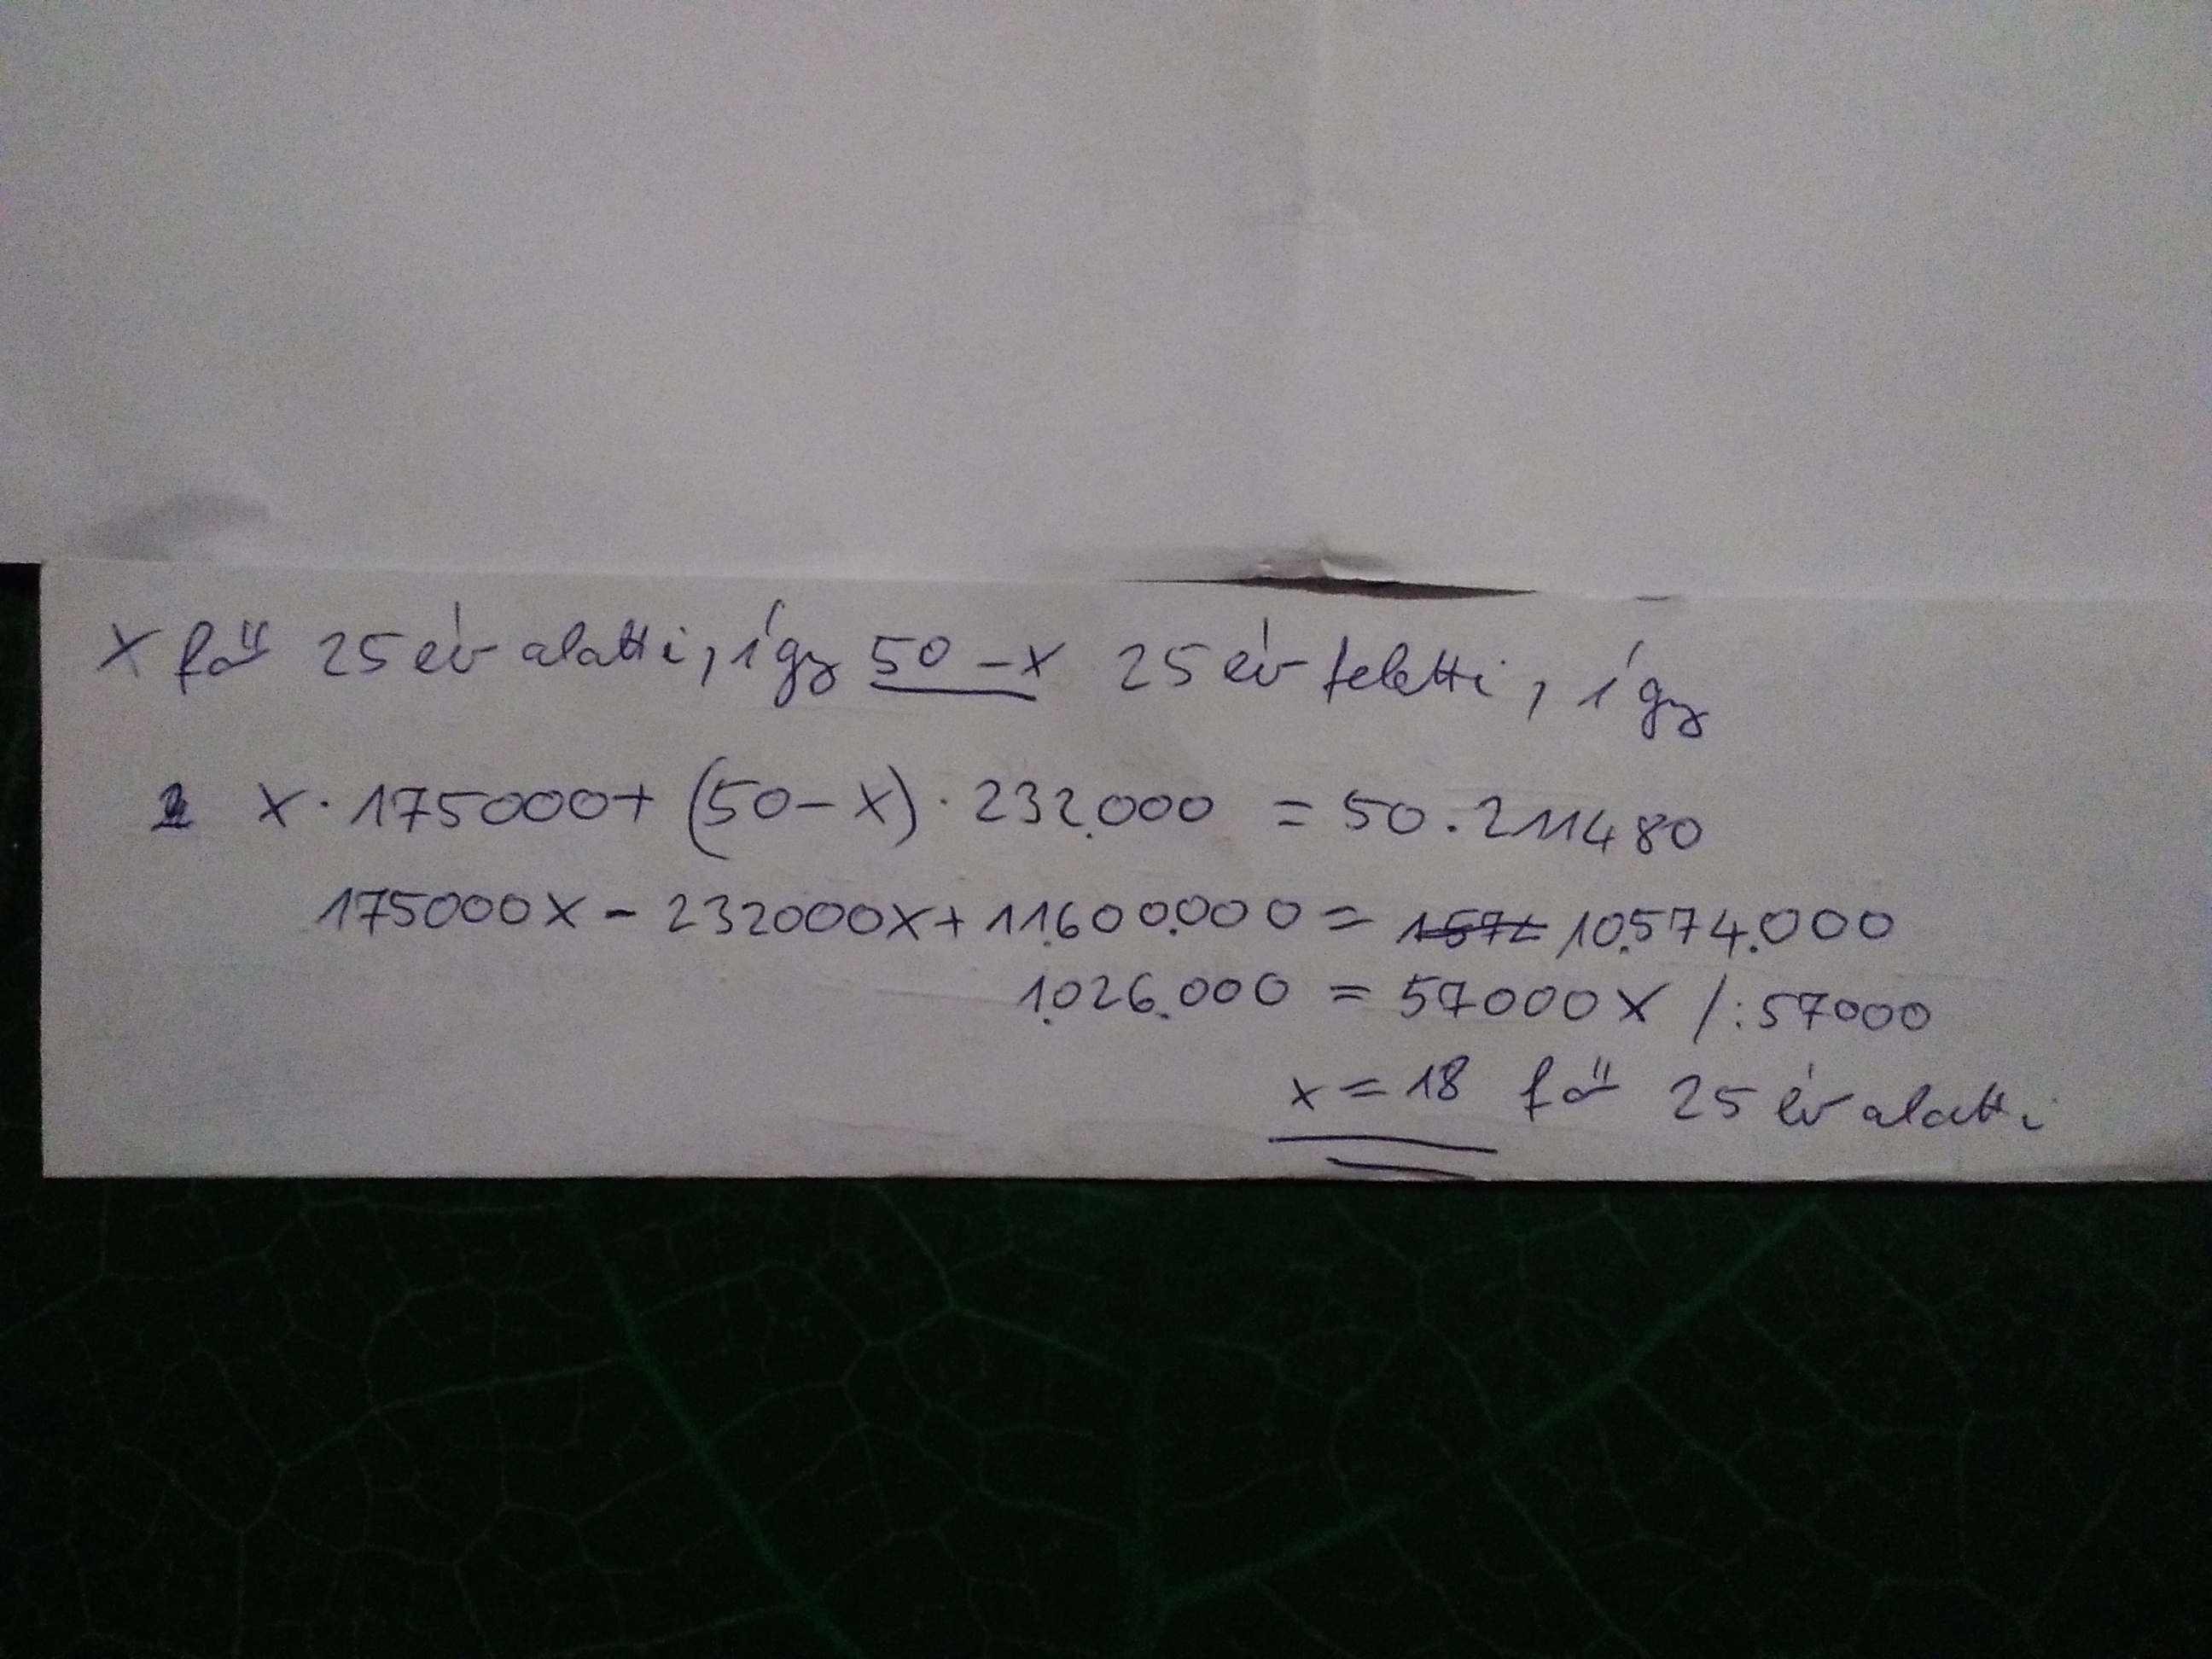 x fő 25 év alatti, így 50 - x 25 év feletti, így
x · 175000 + (50 - x) · 232.000 = 50 · 211480
175000x - 232000x + 11.600.000 = 10.574.000
1.026.000 = 57000x /:57000
x = 18 fő 25 év alatti